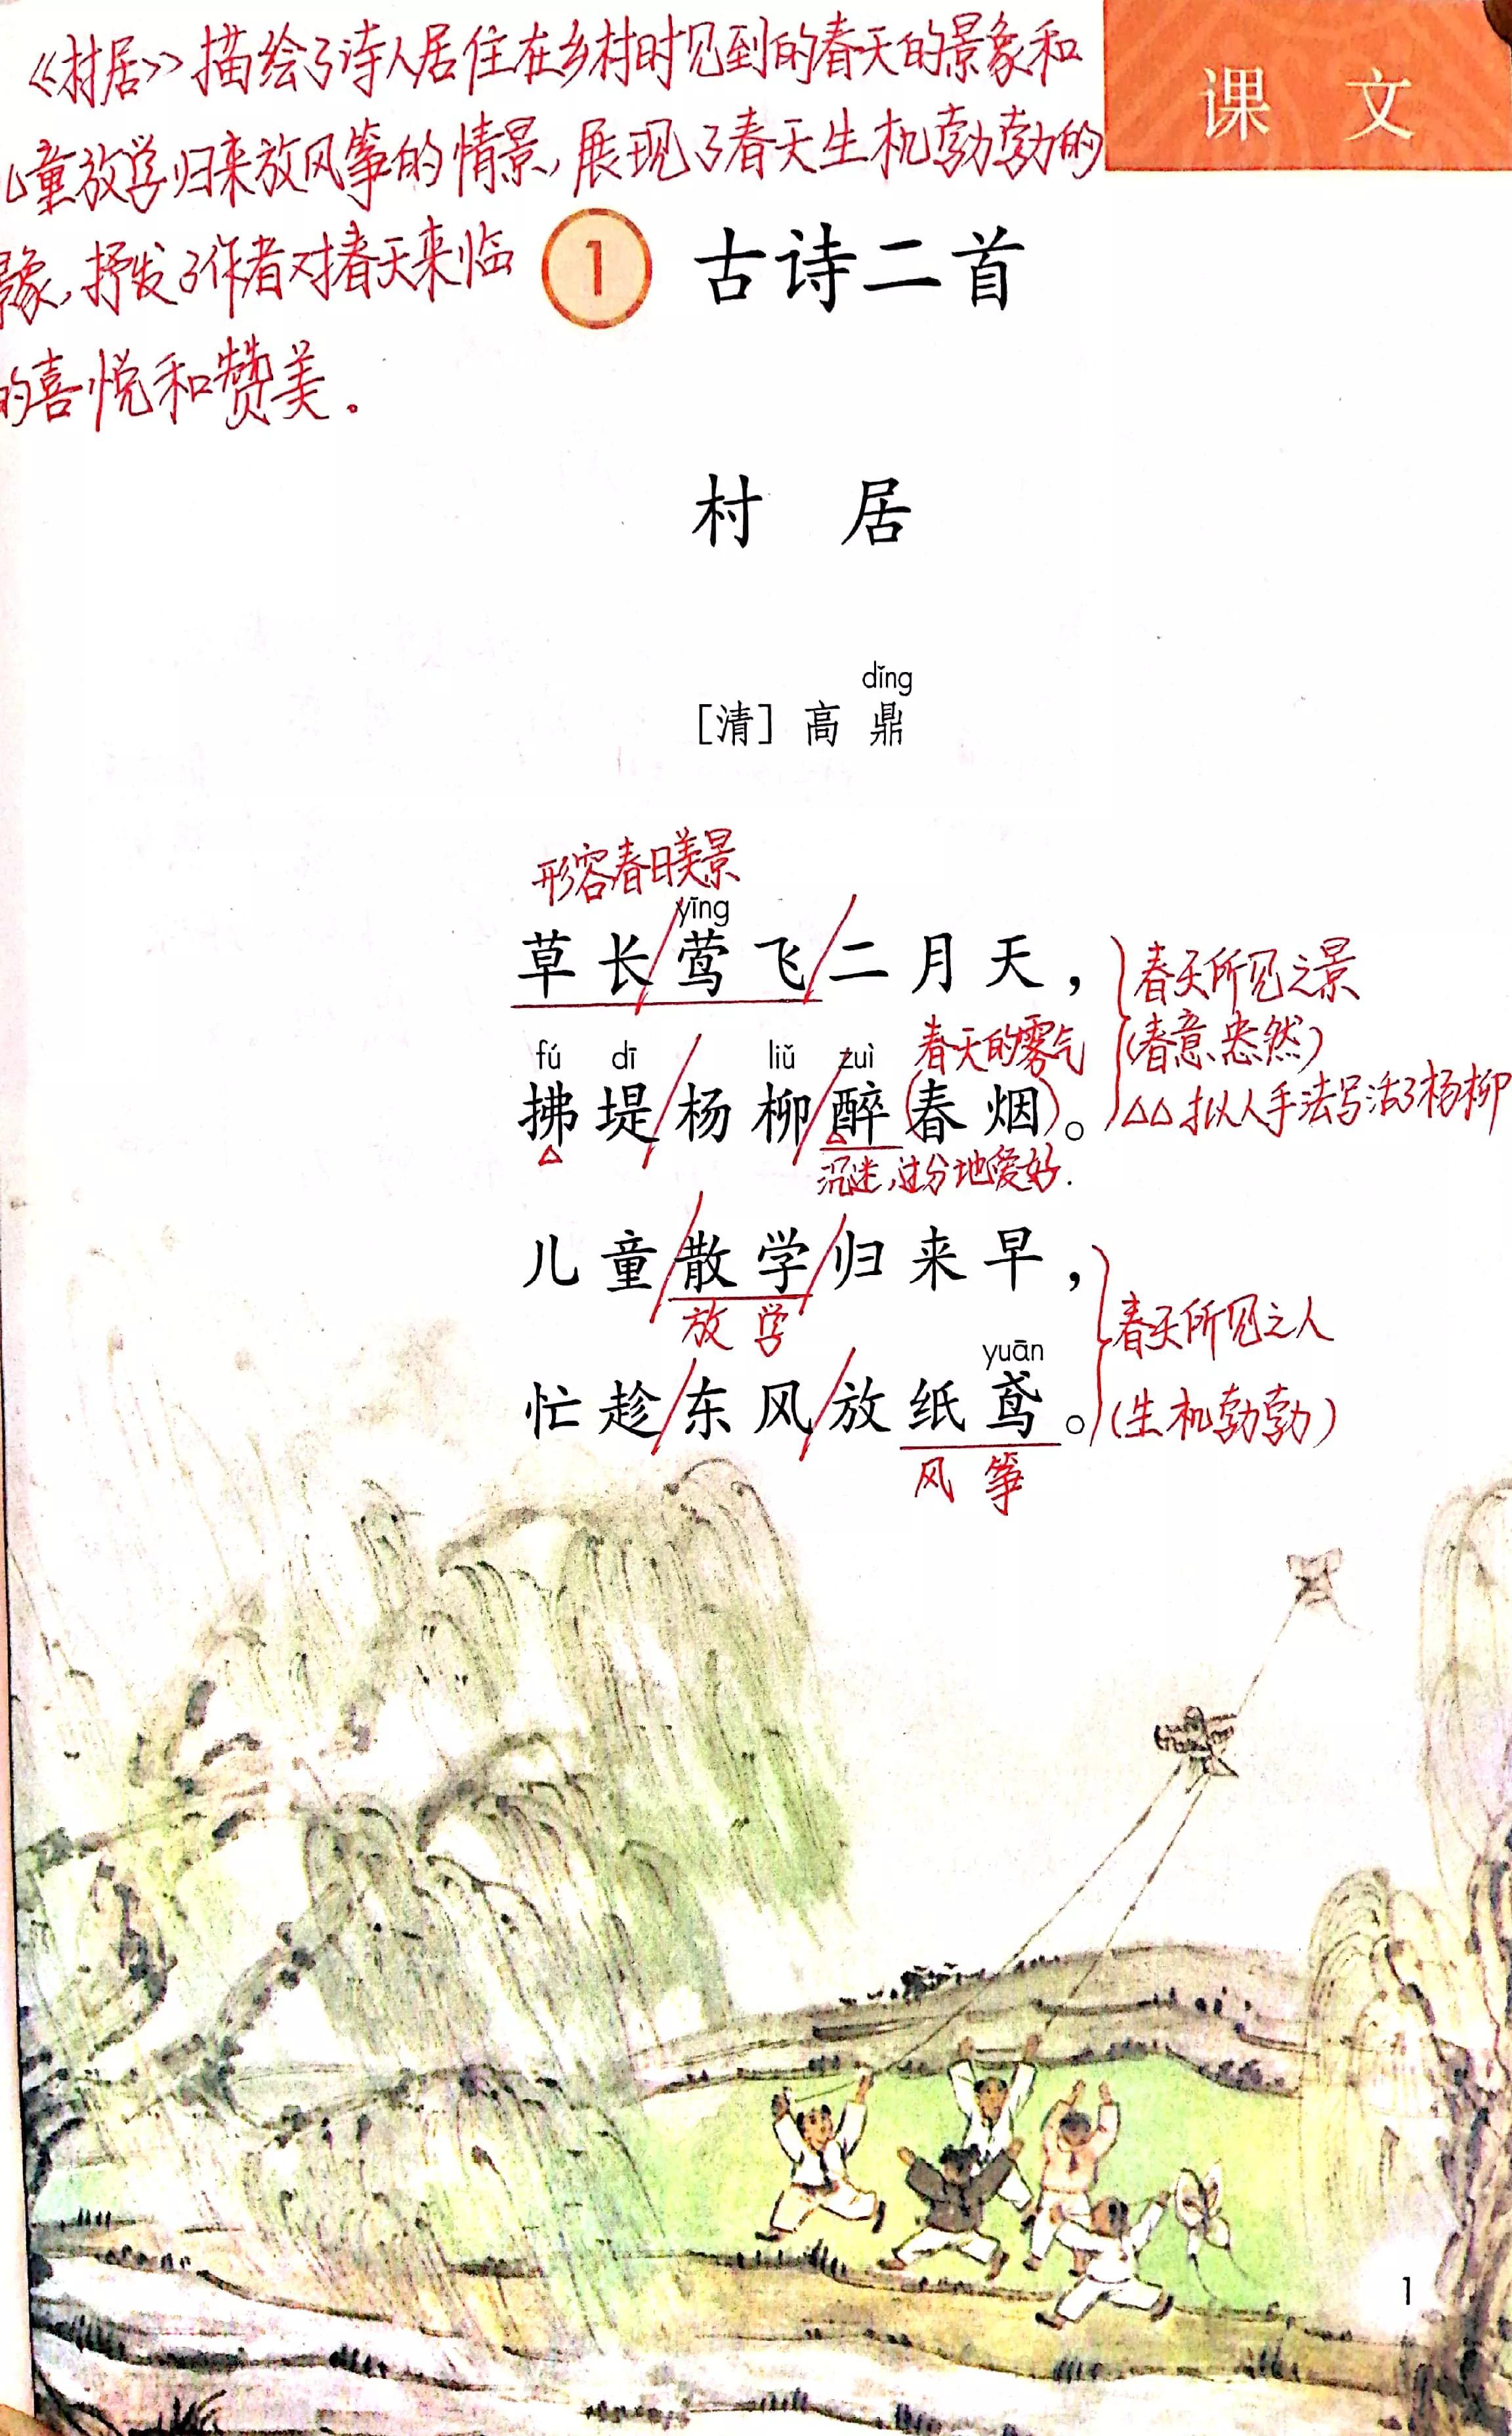 《村居》描绘了诗人居住在乡村时见到的春天的景象和
课 文
儿童放学归来放风筝的情景,展现了春天生机勃勃的
景象,抒发了作者对春天来临
1 古诗二首
的喜悦和赞美。
村 居
dǐng
[清] 高 鼎
形容春日美景
yīng
草长/莺飞/二月天,
春天所见之景
fú dī liǔ zuì
春天的雾气
(春意盎然)
拂堤/杨柳/醉(春烟)。
△△拟人手法写活了杨柳
沉迷,过分地爱好.
儿童/散学/归来早,
放学
春天所见之人
yuān
忙趁/东风/放纸鸢。
(生机勃勃)
风筝
1